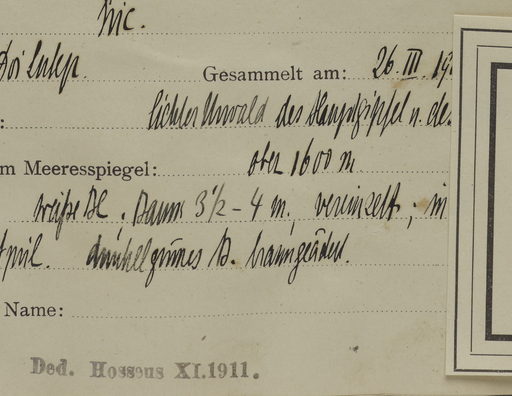 Sic.
Doi Sutep.
Gesammelt am: 26. III. 19
: lichter Urwald des Hauptgipfel u. de
m Meeresspiegel: ober 1600 m
weiße Bl. ; Baum 3½ - 4 m, vereinzelt ; in
April. dunkelgrünes B. braungeädert.
Name:
Ded. Hosseus XI.1911.